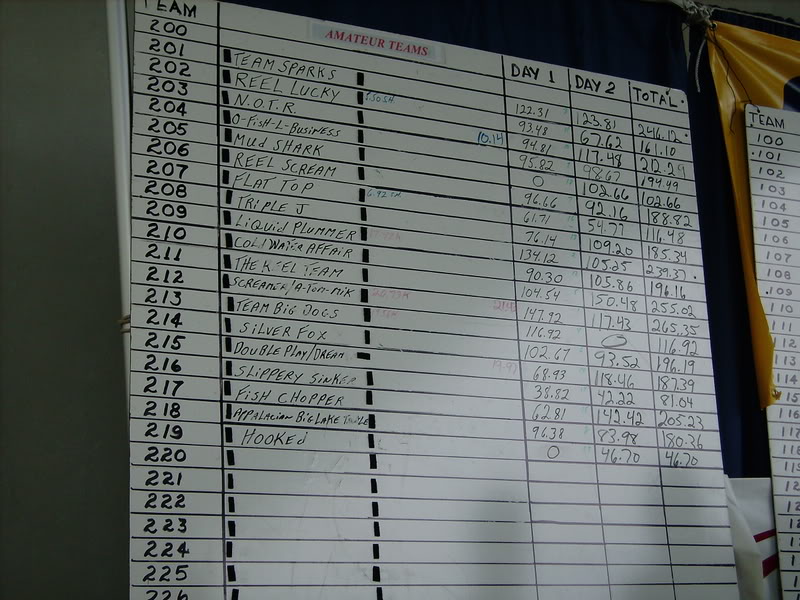 TEAM AMATEUR TEAMS DAY 1 DAY 2 TOTAL
200
201 TEAM SPARKS 122.31 123.81 246.12
202 REEL LUCKY 93.48 67.62 161.10
203 N.O.T.R. 94.81 117.48 212.29
204 O-FISH-L-BUSINESS 10.14 95.82 98.67 194.49
205 MUD SHARK 0 102.66 102.66
206 REEL SCREAM 96.66 92.16 188.82
207 FLAT TOP 61.71 54.77 116.48
208 TRIPLE J 76.14 109.20 185.34
209 LIQUID PLUMMER 134.12 105.25 239.37
210 COLDWATER AFFAIR 90.30 105.86 196.16
211 THE REEL TEAM 104.54 150.48 255.02
212 SCREAMER/A-TOM-MIK 147.92 117.43 265.35
213 TEAM BIG DOGS 116.92 0 116.92
214 SILVER FOX 102.67 93.52 196.19
215 DOUBLE PLAY/DREAM 68.93 118.46 187.39
216 SLIPPERY SINKER 38.82 42.22 81.04
217 FISH CHOPPER 62.81 142.42 205.23
218 APPALACIAN BIG LAKE 96.38 83.98 180.36
219 HOOKED 0 46.70 46.70
220
221
222
223
224
225
226
TEAM
100
101
102
103
104
105
106
107
108
109
110
111
112
113
114
115
116
117
118